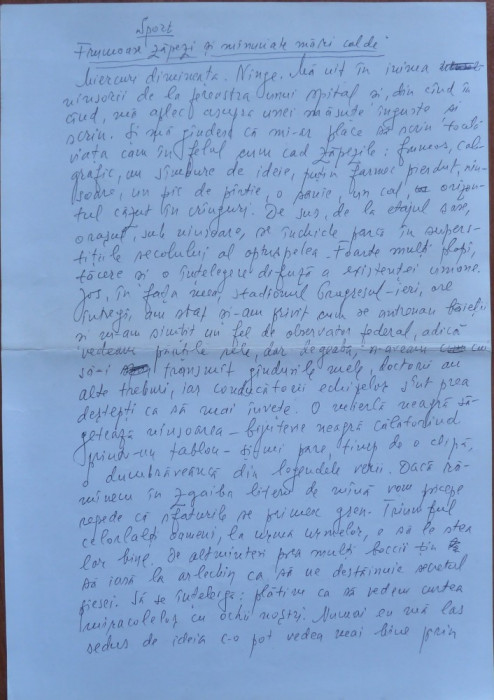 Sport
Frumoase zăpezi și minunate mări calde
Miercuri dimineața. Ninge. Mă uit în inima
ninsorii de la fereastra unui spital și, din cînd în
cînd, mă aplec asupra unei măsuțe înguste și
scriu. Și mă gîndesc că mi-ar place să scriu toată
viața cam în felul cum cad zăpezile: frumos, cali-
grafic, un sîmbure de ideie, puțin farmec pierdut, nin-
soare, un pic de pîntie, o sanie, un cal, orizon-
tul căzut în crînguri. De sus, de la etajul șase,
orașul, sub ninsoare, se închide parcă în supers-
tițiile secolului al optsprelea. Foarte mulți plopi,
tăcere și o înțelegere difuză a existenței umane.
Jos, în fața mea, stadionul Progresul - ieri, ore
întregi, am stat și-am privit cum se antrenau băieții
și m-am simțit un fel de observator federal, adică
vedeam părțile rele, dar degeaba, n-aveam cui
să-i transmit gîndurile mele, doctorii au
alte treburi, iar conducătorii echipelor sînt prea
deștepți ca să mai învețe. O veveriță neagră să-
getează ninsoarea - bijuterie neagră călătorind
printr-un tablou - și-mi pare, timp de o clipă,
o dumbrăveancă din legendele verii. Dacă ră-
mînem în zgaiba literei de mînă vom pricepe
repede că sfaturile se primesc greu. Triumful
celorlalți oameni, la urma urmelor, o să le stea
lor bine. De altminteri prea mulți boccii țin
să iasă la arlechin ca să ne destăinuie secretul
piesei. Să se înțeleagă: plătim ca să vedem curtea
miracolelor cu ochii noștri. Numai eu mă las
sedus de ideia c-o pot vedea mai bine prin